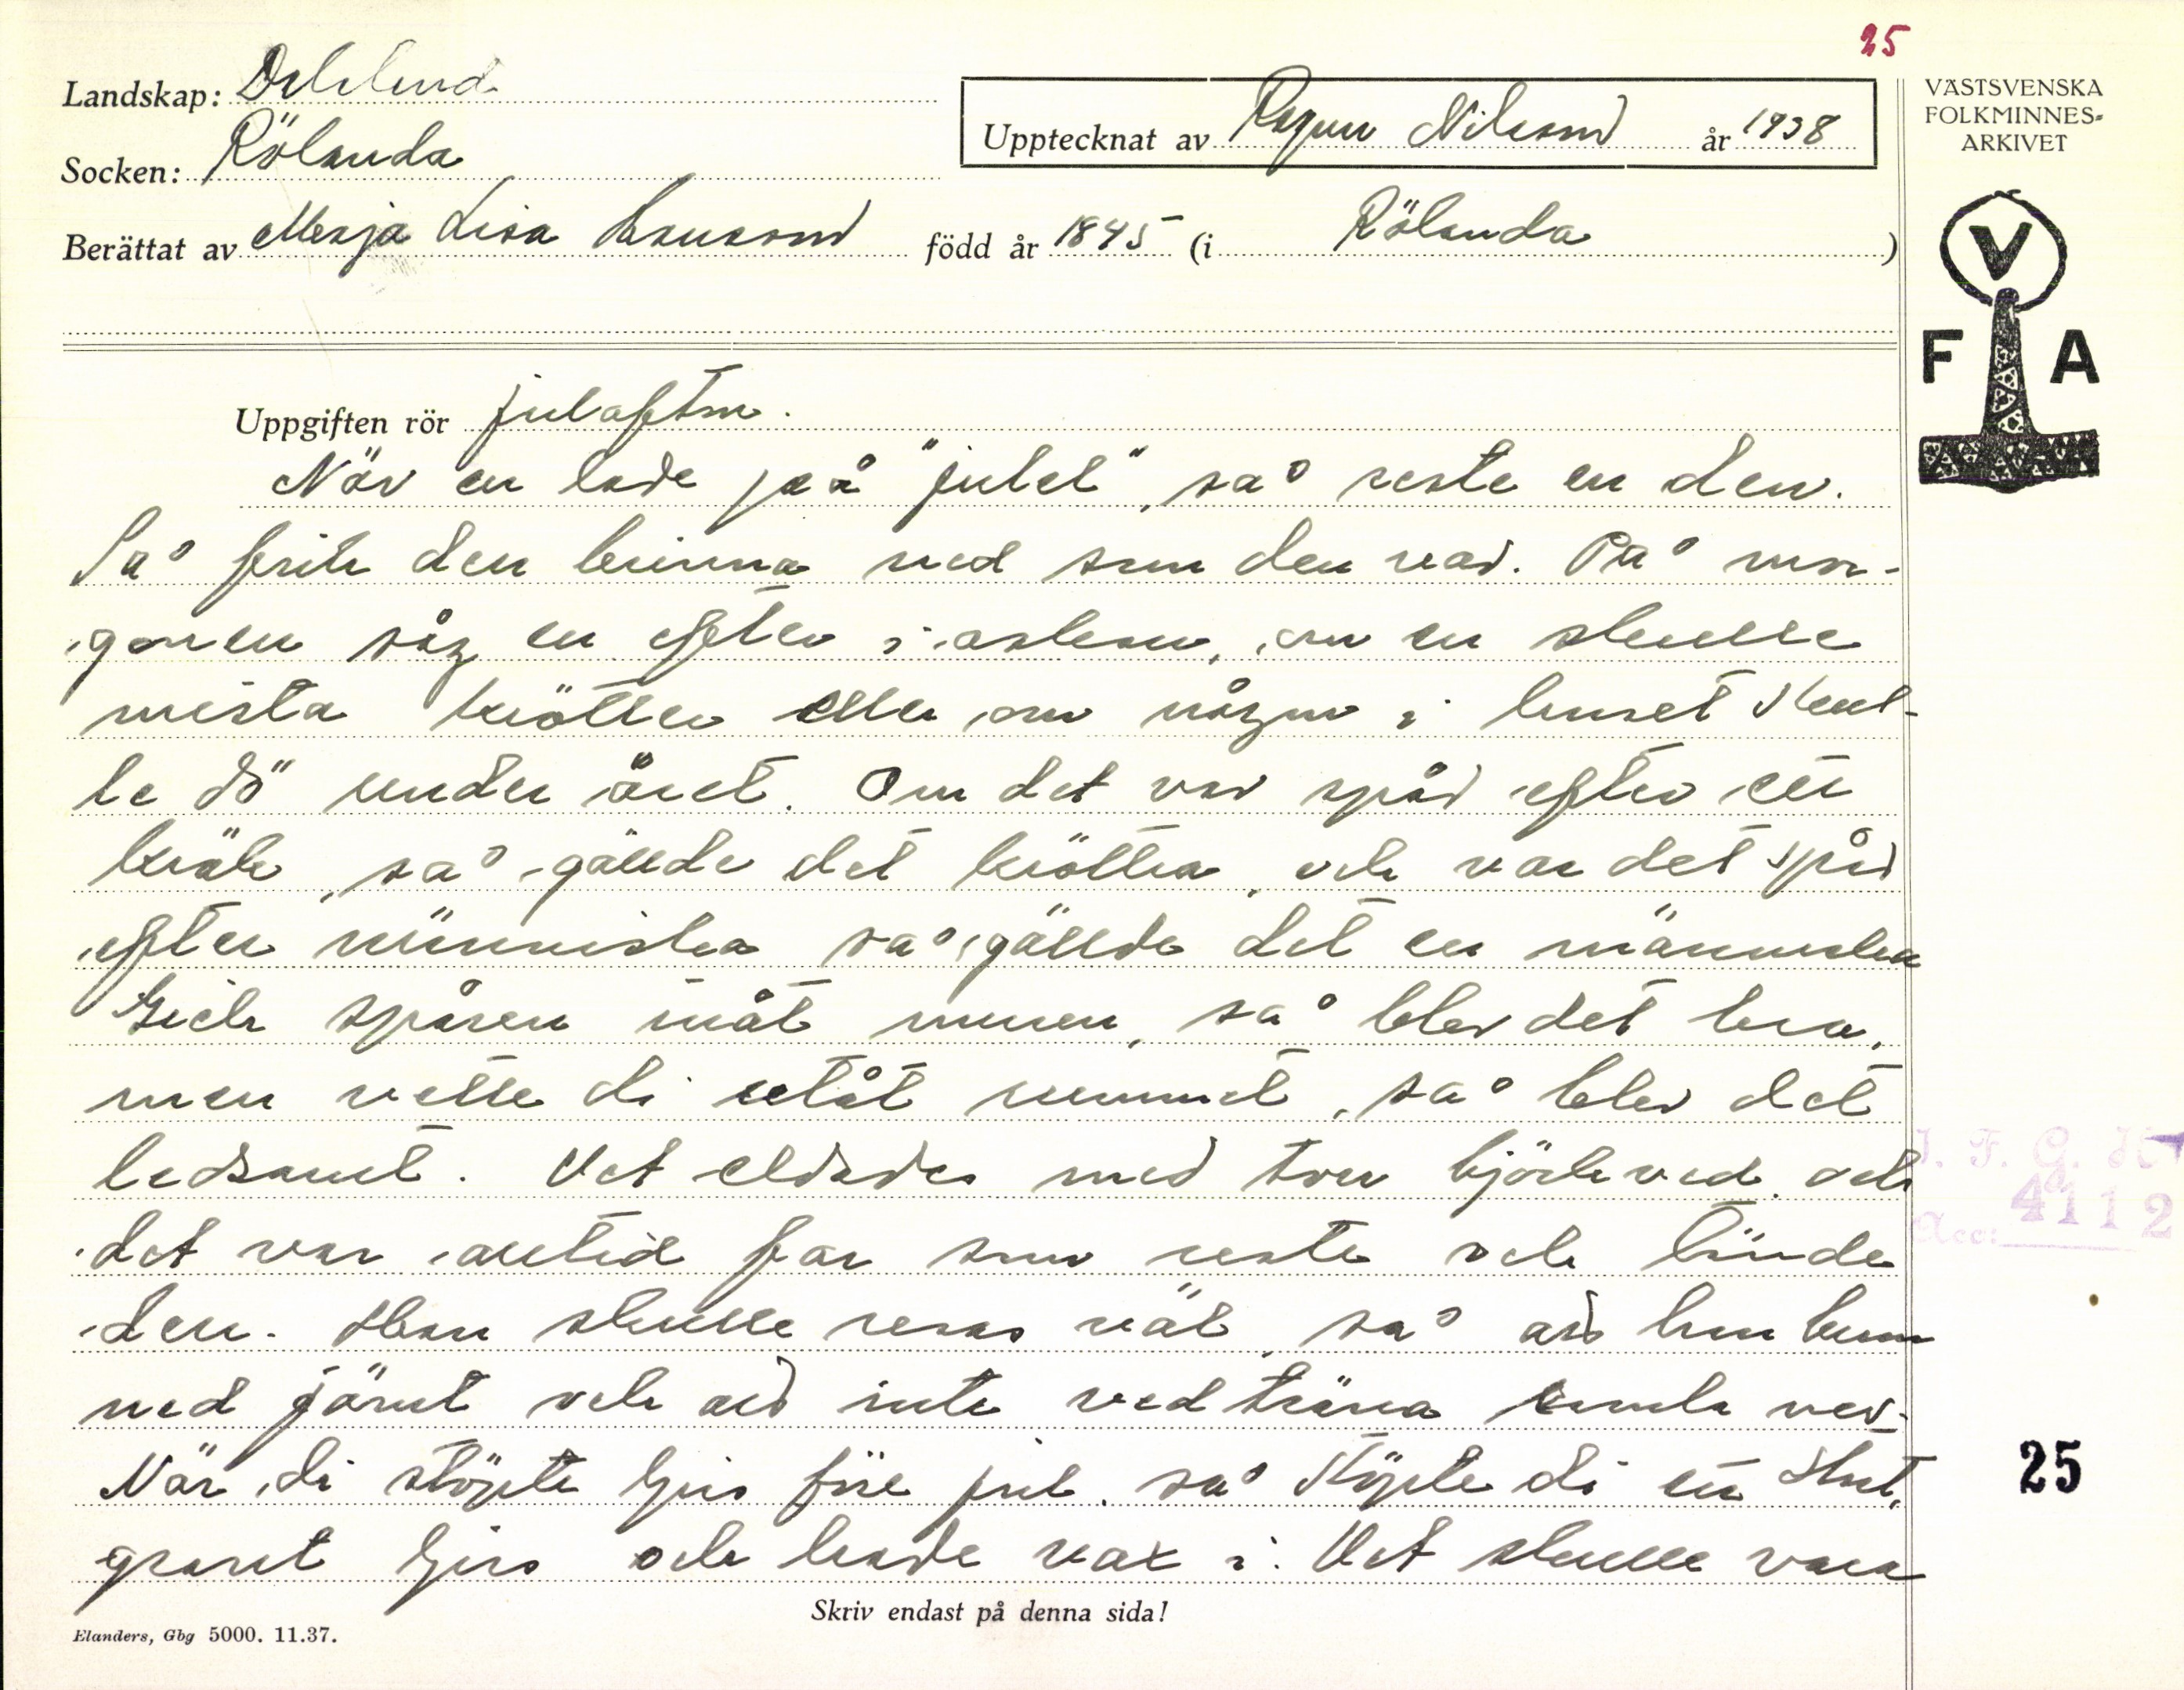 25
Landskap: Dalsland
Socken: Rölanda
Upptecknat av Ragnar Nilsson år 1938
Berättat av Maja Lisa född år 1845 (i Rölanda)
VÄSTSVENSKA
FOLKMINNES-
ARKIVET
V
F A
Uppgiften rör julafton.
När en lade på "julel", så reste en den.
Så fick den brinna ned som den var. På mor-
gonen såg en efter i askan, om en skulle
mista krötter eller om någon i huset skul-
le dö under året. Om det var spår efter ett
kräk, så gällde det kröttra, och var det spår
efter människa så gällde det en människa
Gick spåren inåt muren, så blev det bra,
men vette di utåt rummet, så blev det
ledsamt. Det eldades med torr björkved och
det var alltid far som reste och tände
den. Han skulle resas väl så att han brann
ned jämt och att inte vedträna ramla ner.
När di stöpte ljus före jul så stöpte di ett
grenat ljus och hade vax i. Det skulle vara
Skriv endast på denna sida!
Elanders, Gbg 5000. 11.37.
Acc: 4112
25